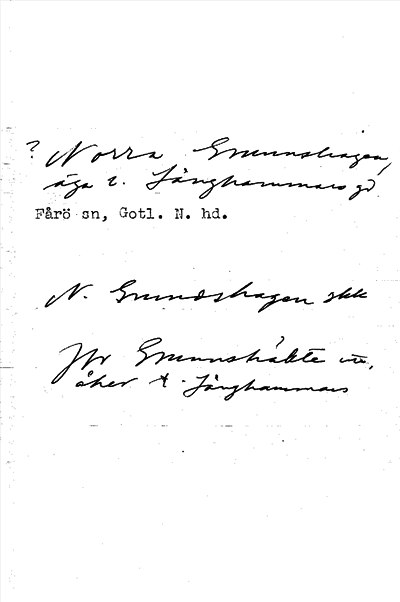 ? Norra Grunnshagen,
äga t. Långhammars gd
Fårö sn, Gotl. N. hd.
N. Grundshagen skk
Jfr Grunnshälle
åker t. Långhammars